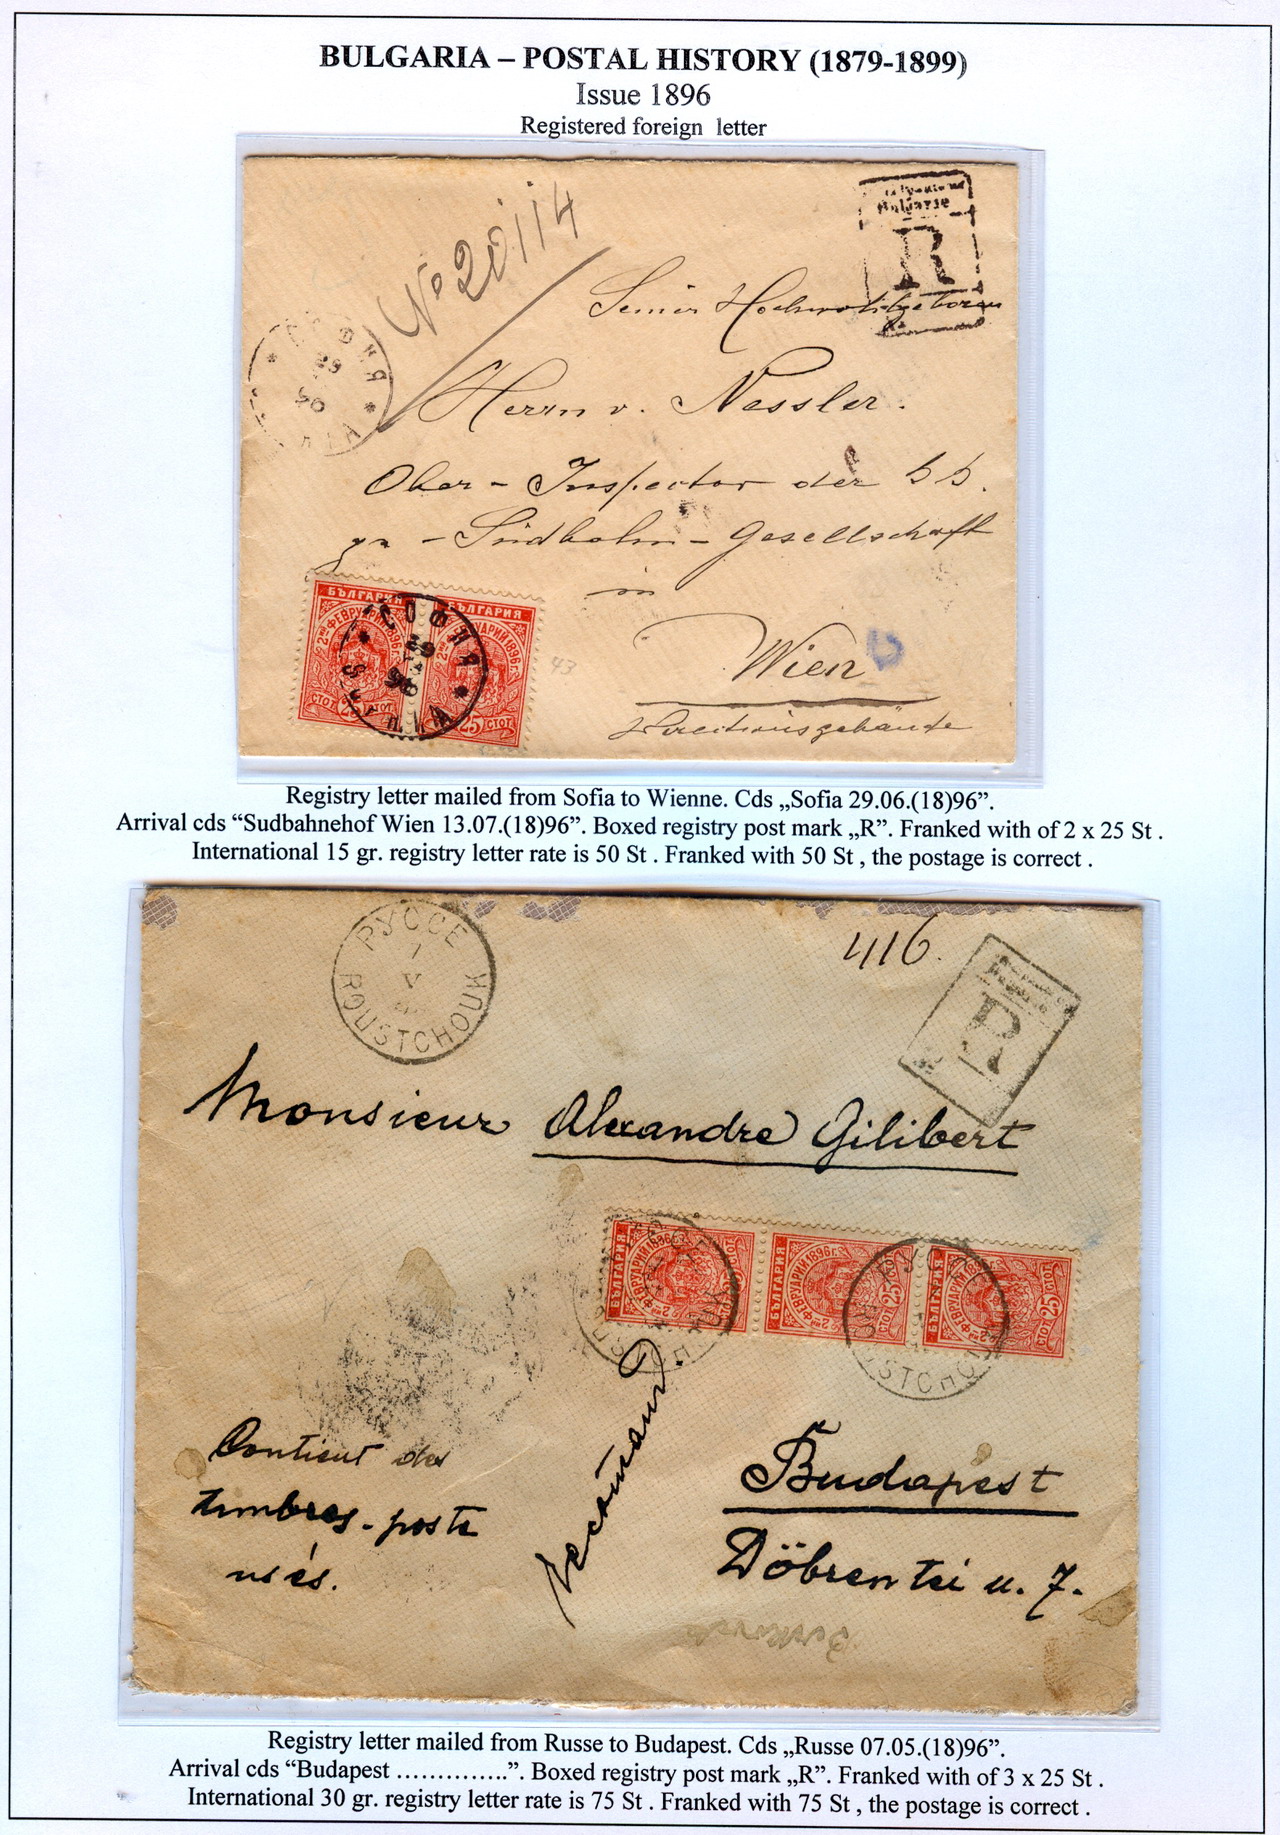 BULGARIA – POSTAL HISTORY (1879-1899)
Issue 1896
Registered foreign letter
№ 20114
Bulgarie
R
Seiner Hochwohlgeboren
Herrn v. Nessler.
Ober - Inspector der
Südbahn - Gesellschaft
in
Wien
Directionsgebäude
СОФИЯ
29
СОФИЯ
БЪЛГАРИЯ
2РИ ФЕВРУАРИЙ 1896 г.
СТОТ. 25 СТОТ.
БЪЛГАРИЯ
25 СТОТ.
43
Registry letter mailed from Sofia to Wienne. Cds „Sofia 29.06.(18)96”.
Arrival cds “Sudbahnehof Wien 13.07.(18)96”. Boxed registry post mark „R”. Franked with of 2 x 25 St .
International 15 gr. registry letter rate is 50 St . Franked with 50 St , the postage is correct .
РУССЕ
V
ROUSTCHOUK
416.
R
Monsieur Alexandre Gilibert
БЪЛГАРИЯ
БЪЛГАРИЯ
25 СТОТ.
БЪЛГАРИЯ
СТОТ. 25 СТОТ.
Recommand.
Contient des
timbres-poste
usés.
Budapest
Döbrentei u. 7.
Registry letter mailed from Russe to Budapest. Cds „Russe 07.05.(18)96”.
Arrival cds “Budapest …………..”. Boxed registry post mark „R”. Franked with of 3 x 25 St .
International 30 gr. registry letter rate is 75 St . Franked with 75 St , the postage is correct .